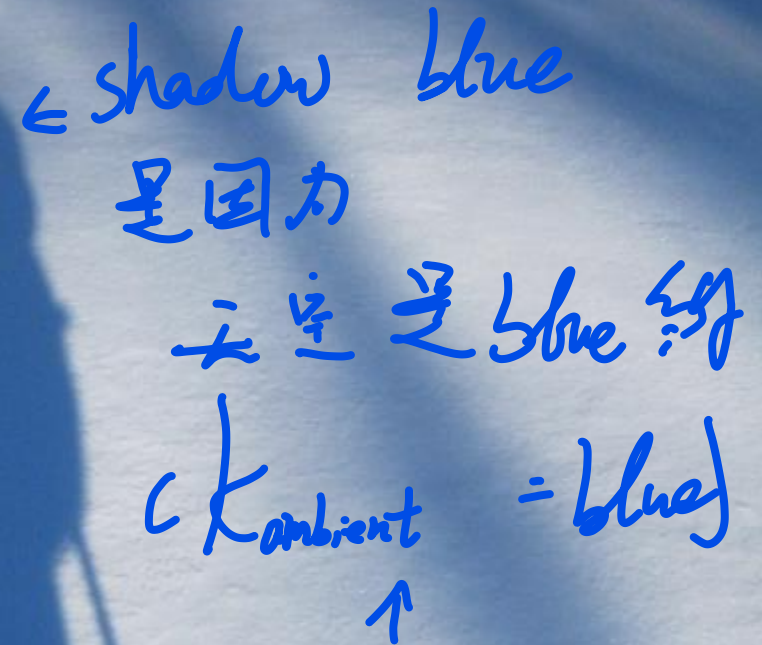 ← shadow blue
是因为
天空是blue的
(K ambient = blue)
↑